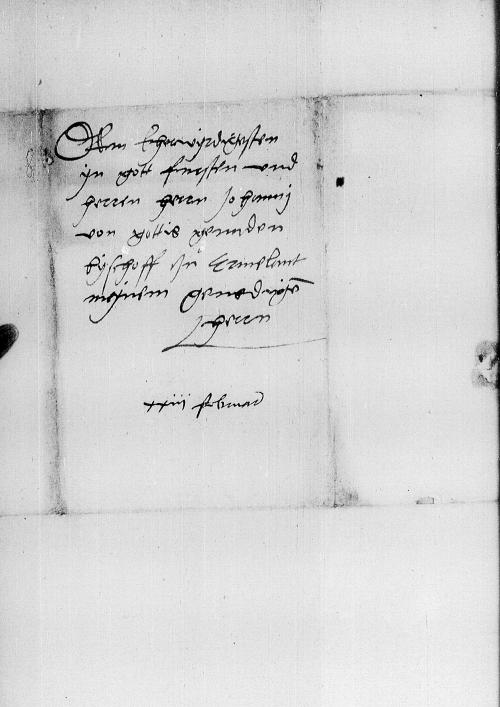 Dem Eherwyrdixesten
yn gott fursten und
herren hern Johanni
von gottis genaden
byschoff zu Ermelant
meynem genedigen
hern
xxiii februar